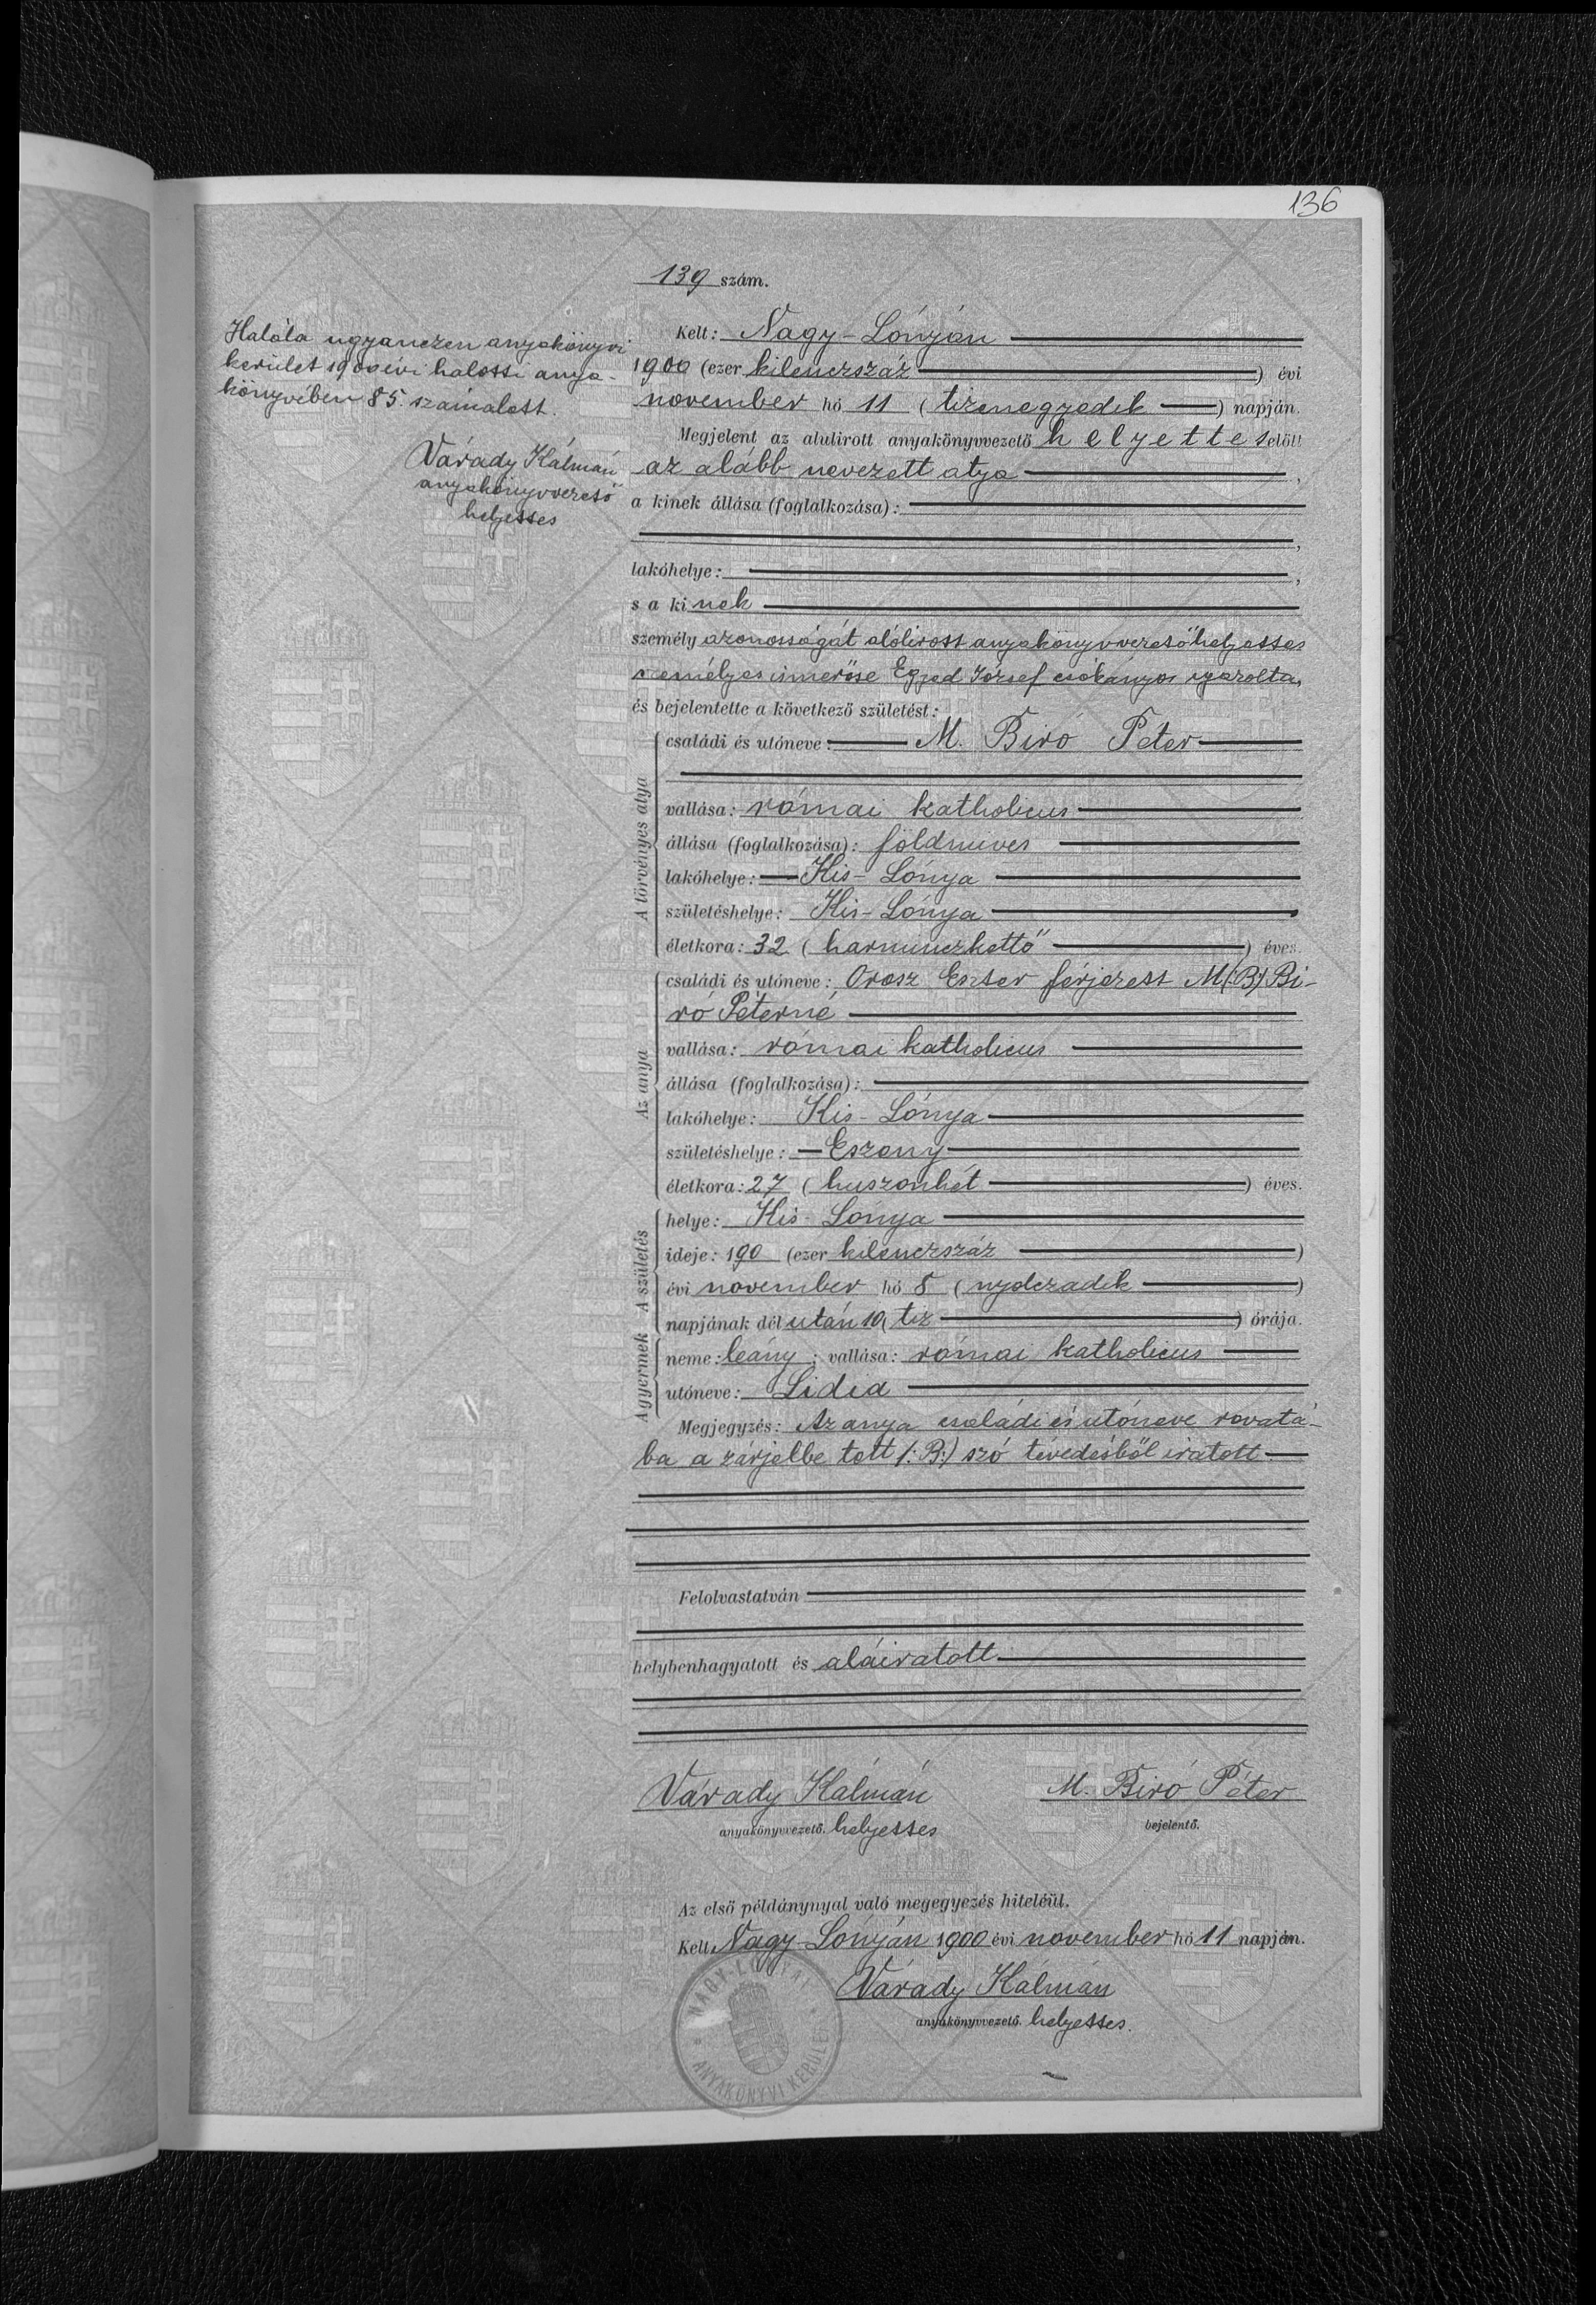 136
139 szám.
Halála ugyanezen anyakönyvi
kerület 1900 évi halotti anya-
könyvében 85. szám alatt.
Várady Kálmán
anyakönyvvezető
helyettes
Kelt: Nagy-Lónyán
1900 (ezer kilenczszáz) évi
november hó 11 (tizenegyedik) napján.
Megjelent az alulirott anyakönyvvezető helyettes előtt
az alább nevezett atya,
a kinek állása (foglalkozása):
,
lakóhelye: ,
s a kinek
személy azonosságát alólirott anyakönyvvezető helyettes
személyes ismerőse Egyed József igazolta,
és bejelentette a következő születést:
A törvényes atya
családi és utóneve: M. Biró Péter
vallása: római katholicus
állása (foglalkozása): földmives
lakóhelye: Kis-Lónya
születéshelye: Kis-Lónya
életkora: 32 (harminczkettő) éves.
Az anya
családi és utóneve: Orosz Eszter férjezett M(:B:) Bi-
ró Péterné
vallása: római katholicus
állása (foglalkozása):
lakóhelye: Kis-Lónya
születéshelye: Eszeny
életkora: 27 (huszonhét) éves.
A születés
helye: Kis-Lónya
ideje: 190 (ezer kilenczszáz)
évi november hó 8 (nyolczadik)
napjának dél után 10 (tiz) órája.
A gyermek
neme: leány; vallása: római katholicus
utóneve: Lidia
Megjegyzés: Az anya családi és utóneve rovatá-
ba a zárjelbe tett (:B:) szó tévedésből iratott.
Felolvastatván
helybenhagyatott és aláiratott
Várady Kálmán M. Biró Péter
anyakönyvvezető. helyettes bejelentő.
Az első példánynyal való megegyezés hiteléül.
Kelt Nagy-Lónyán 1900 évi november hó 11 napján.
Várady Kálmán
anyakönyvvezető. helyettes.
NAGY-LÓNYAI
ANYAKÖNYVI KERÜLET